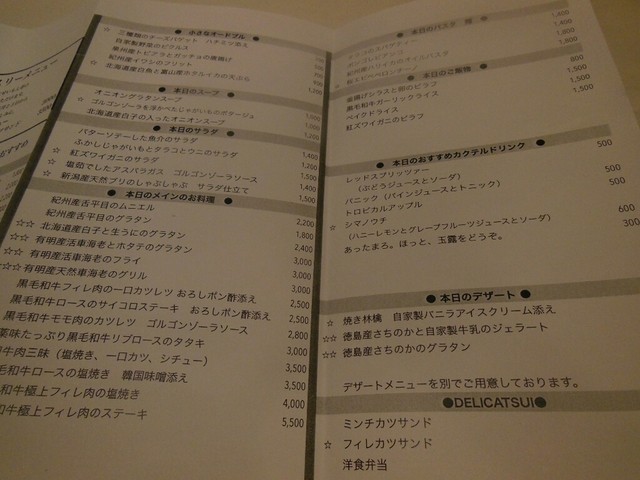 リーメニュー
● 小さなオードブル ●
☆ 三種類のチーズバゲット ハチミツ添え
自家製野菜のピクルス
泉州産トビアラとガッチョの唐揚げ
紀州産イワシのフリット
☆ 北海道産白魚と富山産ホタルイカの天ぷら
● 本日のスープ ●
オニオングラタンスープ
☆ ゴルゴンゾーラを浮かべたじゃがいものポタージュ
北海道産白子の入ったオニオンスープ
● 本日のサラダ ●
バターソテーした魚介のサラダ 1,200
ふかしじゃがいもとタラコとウニのサラダ 1,400
☆ 紅ズワイガニのサラダ 1,260
☆ 塩茹でしたアスパラガス ゴルゴンゾーラソース 1,500
☆ 新潟産天然ブリのしゃぶしゃぶ サラダ仕立て 1,400
1,500
● 本日のメインのお料理 ●
紀州産舌平目のムニエル 2,200
紀州産舌平目のグラタン 1,800
☆☆ 北海道産白子と生うにのグラタン 2,400
☆☆ 有明産活車海老とホタテのグラタン 3,000
☆☆ 有明産活車海老のフライ 3,000
☆☆ 有明産天然車海老のグリル 3,000
黒毛和牛フィレ肉の一口カツレツ おろしポン酢添え 2,500
黒毛和牛ロースのサイコロステーキ おろしポン酢添え 2,500
黒毛和牛モモ肉のカツレツ ゴルゴンゾーラソース 2,800
薬味たっぷり黒毛和牛リブロースのタタキ 3,000
牛肉三昧（塩焼き、一口カツ、シチュー） 3,500
毛和牛ロースの塩焼き 韓国味噌添え 3,500
和牛極上フィレ肉の塩焼き 4,000
和牛極上フィレ肉のステーキ 5,500
● 本日のパスタ 麺 ●
1,400
1,400
1,800
1,800
● 本日のご飯物 ●
釜揚げシラスと卵のピラフ 800
黒毛和牛ガーリックライス 1,500
ベイクドライス 1,500
紅ズワイガニのピラフ 1,500
● 本日のおすすめカクテルドリンク ●
レッドスプリッツァー 500
（ぶどうジュースとソーダ）
パニック（パインジュースとトニック） 500
トロピカルアップル 500
☆ シマノウチ 600
（ハニーレモンとグレープフルーツジュースとソーダ）
あったまろ。ほっと、玉露をどうぞ。 300
● 本日のデザート ●
☆ 焼き林檎 自家製バニラアイスクリーム添え
☆☆ 徳島産さちのかと自家製牛乳のジェラート
☆☆ 徳島産さちのかのグラタン
デザートメニューを別でご用意しております。
●DELICATSUI●
ミンチカツサンド
☆ フィレカツサンド
洋食弁当